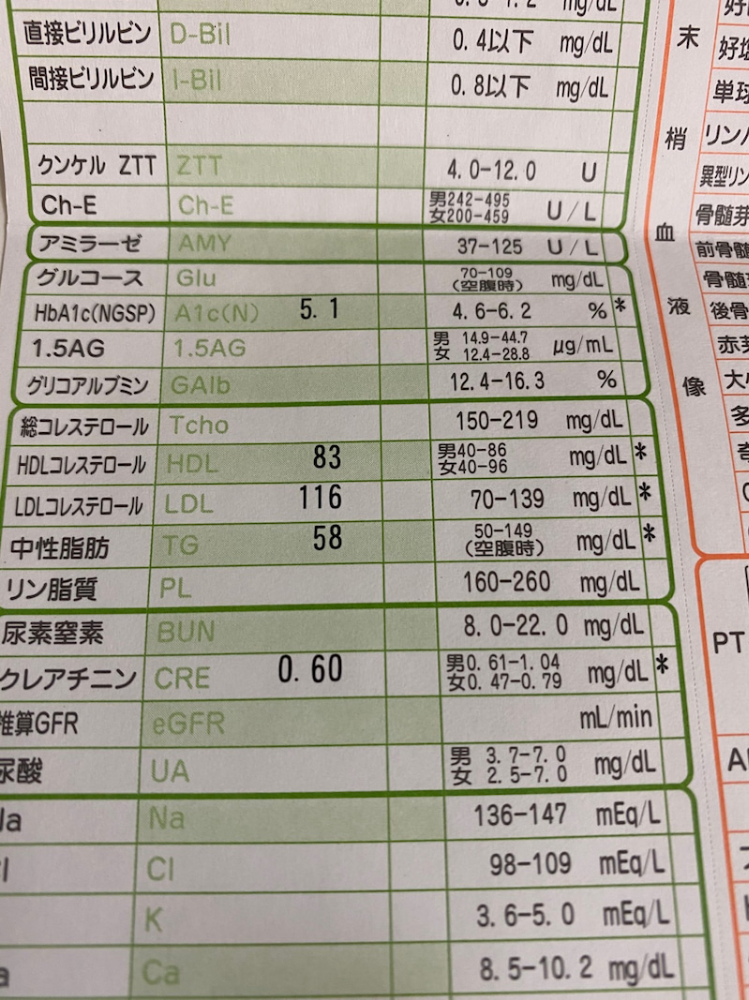 mg/dL
直接ビリルビン D-Bil 0.4以下 mg/dL
間接ビリルビン I-Bil 0.8以下 mg/dL
クンケル ZTT ZTT 4.0-12.0 U
Ch-E Ch-E 男242-495 女200-459 U/L
アミラーゼ AMY 37-125 U/L
グルコース Glu 70-109 (空腹時) mg/dL
HbA1c(NGSP) A1c(N) 5.1 4.6-6.2 % *
1.5AG 1.5AG 男 14.9-44.7 女 12.4-28.8 μg/mL
グリコアルブミン GAlb 12.4-16.3 %
総コレステロール Tcho 150-219 mg/dL
HDLコレステロール HDL 83 男40-86 女40-96 mg/dL *
LDLコレステロール LDL 116 70-139 mg/dL *
中性脂肪 TG 58 50-149 (空腹時) mg/dL *
リン脂質 PL 160-260 mg/dL
尿素窒素 BUN 8.0-22.0 mg/dL
クレアチニン CRE 0.60 男0.61-1.04 女0.47-0.79 mg/dL *
推算GFR eGFR mL/min
尿酸 UA 男 3.7-7.0 女 2.5-7.0 mg/dL
Na 136-147 mEq/L
Cl 98-109 mEq/L
K 3.6-5.0 mEq/L
Ca 8.5-10.2 mg/dL
末梢血液像
単球
リンパ
異型リン
骨髄芽
前骨髄
骨髄
後骨
赤芽
PT